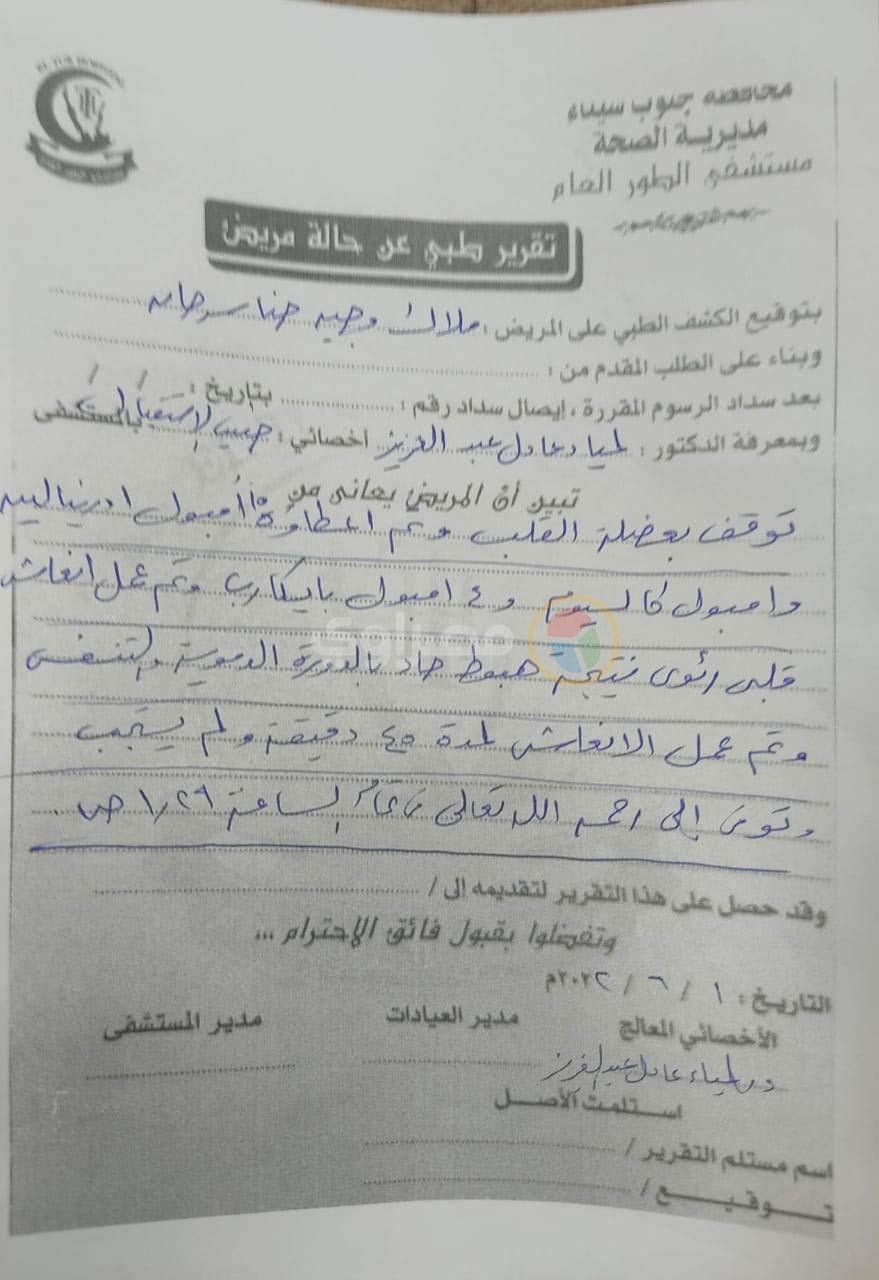 محافظة جنوب سيناء
مديرية الصحة
مستشفى الطور العام
تقرير طبي عن حالة مريض
بتوقيع الكشف الطبي على المريض : ملاك وجيه حنا
وبناء على الطلب المقدم من :
بعد سداد الرسوم المقررة ، إيصال سداد رقم : بتاريخ : / /
وبمعرفة الدكتور : لمياء عادل عبد العزيز أخصائي : طبيب الاستقبال بالمستشفى
تبين أن المريض يعانى من
توقف بعضلة القلب وتم اعطاؤه امبول ادرينالين
وامبول كالسيوم و ٤ امبول بايكارب وتم عمل انعاش
قلبى رئوى نتيجة هبوط حاد بالدورة الدموية والتنفس
وتم عمل الانعاش لمدة ٤٥ دقيقة ولم يستجب
وتوفى إلى رحمة الله تعالى الساعة ١,٢٩ ص .
وقد حصل على هذا التقرير لتقديمه إلى /
وتفضلوا بقبول فائق الإحترام ...
التاريخ : ١ / ٦ / ٢٠٢٢م
الأخصائي المعالج مدير العيادات مدير المستشفى
د. لمياء عادل عبد العزيز
استلمت الأصل
اسم مستلم التقرير /
توقيع /